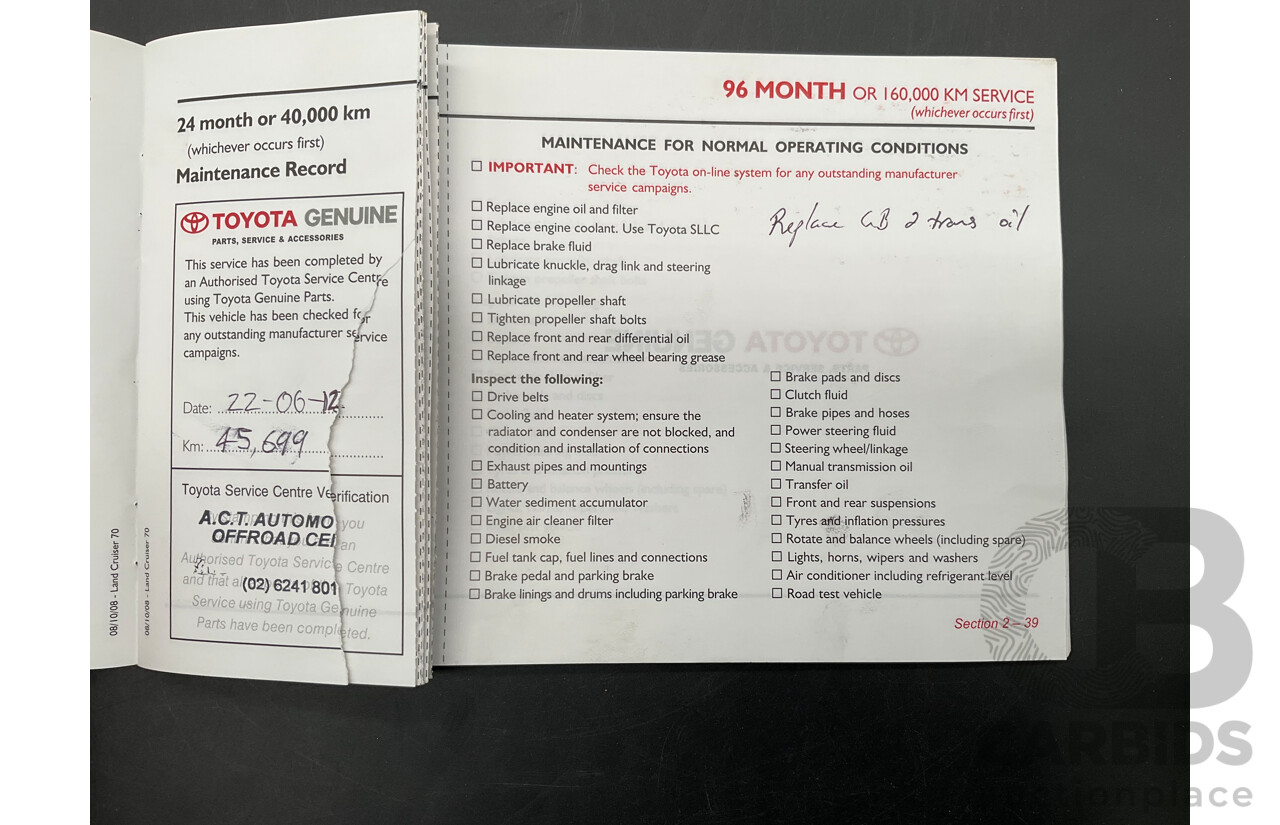 24 month or 40,000 km
(whichever occurs first)
Maintenance Record
TOYOTA GENUINE
PARTS, SERVICE & ACCESSORIES
This service has been completed by
an Authorised Toyota Service Centre
using Toyota Genuine Parts.
This vehicle has been checked for
any outstanding manufacturer service
campaigns.
Date: 22-06-12
Km: 45,699
Toyota Service Centre Verification
A.C.T. AUTOMO
you
OFFROAD CEN
an
Authorised Toyota Service Centre
and that al
(02) 6241 801
Toyota
Service using Toyota Genuine
Parts have been completed.
08/10/08 - Land Cruiser 70
08/10/08 - Land Cruiser 70
96 MONTH OR 160,000 KM SERVICE
(whichever occurs first)
MAINTENANCE FOR NORMAL OPERATING CONDITIONS
IMPORTANT: Check the Toyota on-line system for any outstanding manufacturer
service campaigns.
Replace engine oil and filter
Replace engine coolant. Use Toyota SLLC
Replace brake fluid
Lubricate knuckle, drag link and steering
linkage
Lubricate propeller shaft
Tighten propeller shaft bolts
Replace front and rear differential oil
Replace front and rear wheel bearing grease
Replace GB 2 trans oil
Inspect the following:
Drive belts
Cooling and heater system; ensure the
radiator and condenser are not blocked, and
condition and installation of connections
Exhaust pipes and mountings
Battery
Water sediment accumulator
Engine air cleaner filter
Diesel smoke
Fuel tank cap, fuel lines and connections
Brake pedal and parking brake
Brake linings and drums including parking brake
Brake pads and discs
Clutch fluid
Brake pipes and hoses
Power steering fluid
Steering wheel/linkage
Manual transmission oil
Transfer oil
Front and rear suspensions
Tyres and inflation pressures
Rotate and balance wheels (including spare)
Lights, horns, wipers and washers
Air conditioner including refrigerant level
Road test vehicle
Section 2 – 39